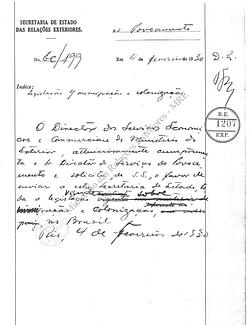 SECRETARIA DE ESTADO
DAS RELAÇÕES EXTERIORES.
Ao Povoamento
No. EC/199
Em 4 de fevereiro 1930
D. L.
Indice:
Legislação s/ immigração e colonização
R.E.
1207
EXP.
O Director dos Serviços Economi-
cos e Commerciaes do Ministerio do
Exterior attenciosamente cumprimen-
ta o Sr. Director do Serviço de Povoa-
mento e solicita, de S.S., o favor de
enviar a esta Secretaria de Estado, to-
da a legislação vigente sobre
immigração e Colonização
no Brasil
Rio, 4 de Fevereiro de 1930